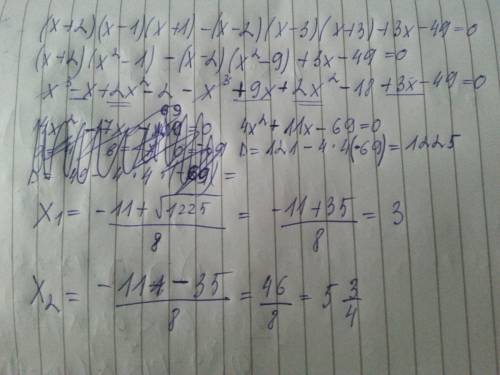 (x+2)(x-1)(x+1)-(x-2)(x-3)(x+3)+3x-49=0
(x+2)(x²-1)-(x-2)(x²-9)+3x-49=0
x³-x+2x²-2-x³+9x+2x²-18+3x-49=0
69
4x²+11x-69=0
D=121-4·4(-69)=1225
X₁= -11+√1225/8 = -11+35/8 = 3
X₂= -11-35/8 = 46/8 = 5 3/4